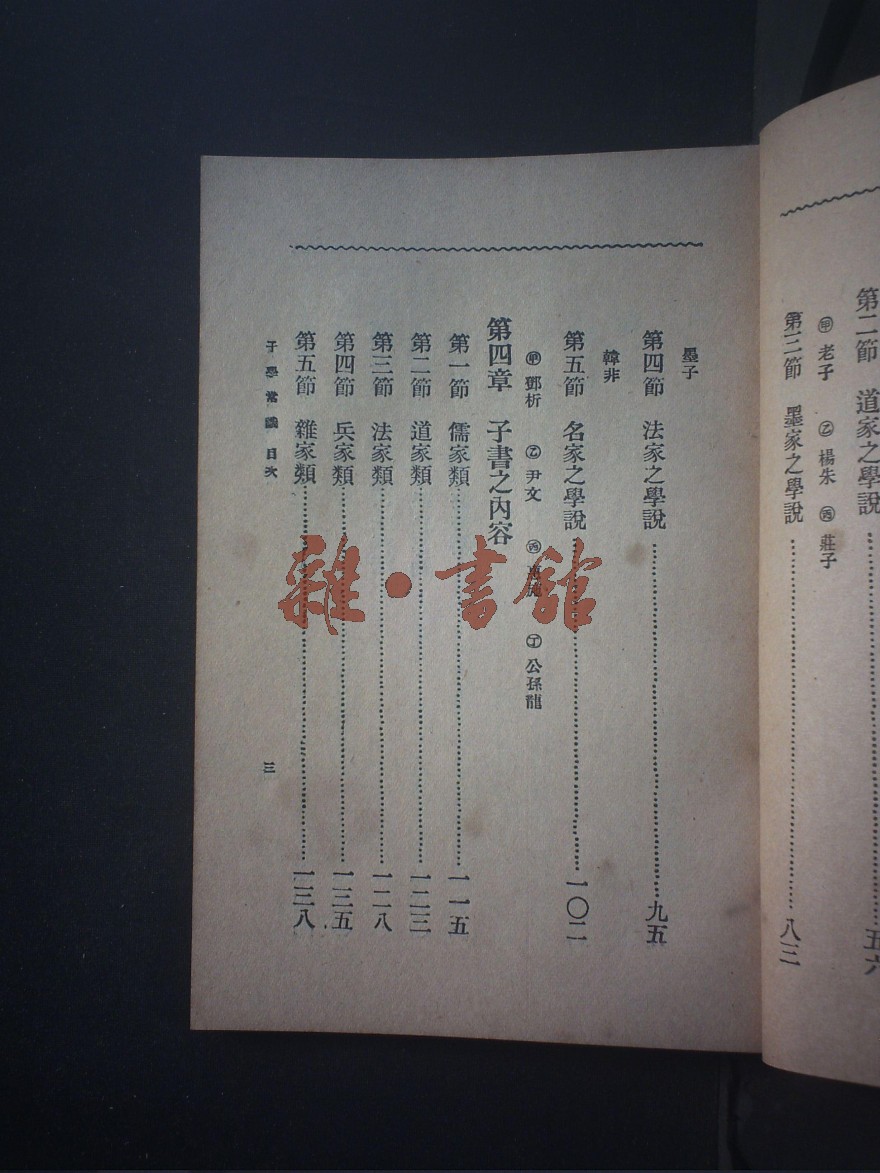 第二節　道家之學說……五六
㊙甲 老子　乙 楊朱　丙 莊子
第三節　墨家之學說……八三
墨子
第四節　法家之學說……九五
韓非
第五節　名家之學說……一〇二
甲 鄧析　乙 尹文　丙　丁 公孫龍
第四章　子書之內容
第一節　儒家類……一一五
第二節　道家類……一二三
第三節　法家類……一二八
第四節　兵家類……一三五
第五節　雜家類……一三八
子學常識　目次
三
雜·書館